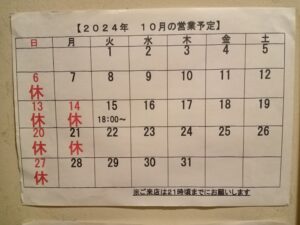 【2024年 10月の営業予定】
日 月 火 水 木 金 土
1 2 3 4 5
6 7 8 9 10 11 12
休
13 14 15 16 17 18 19
休 休 18:00～
20 21 22 23 24 25 26
休 休
27 28 29 30 31
休
※ご来店は21時頃までにお願いします